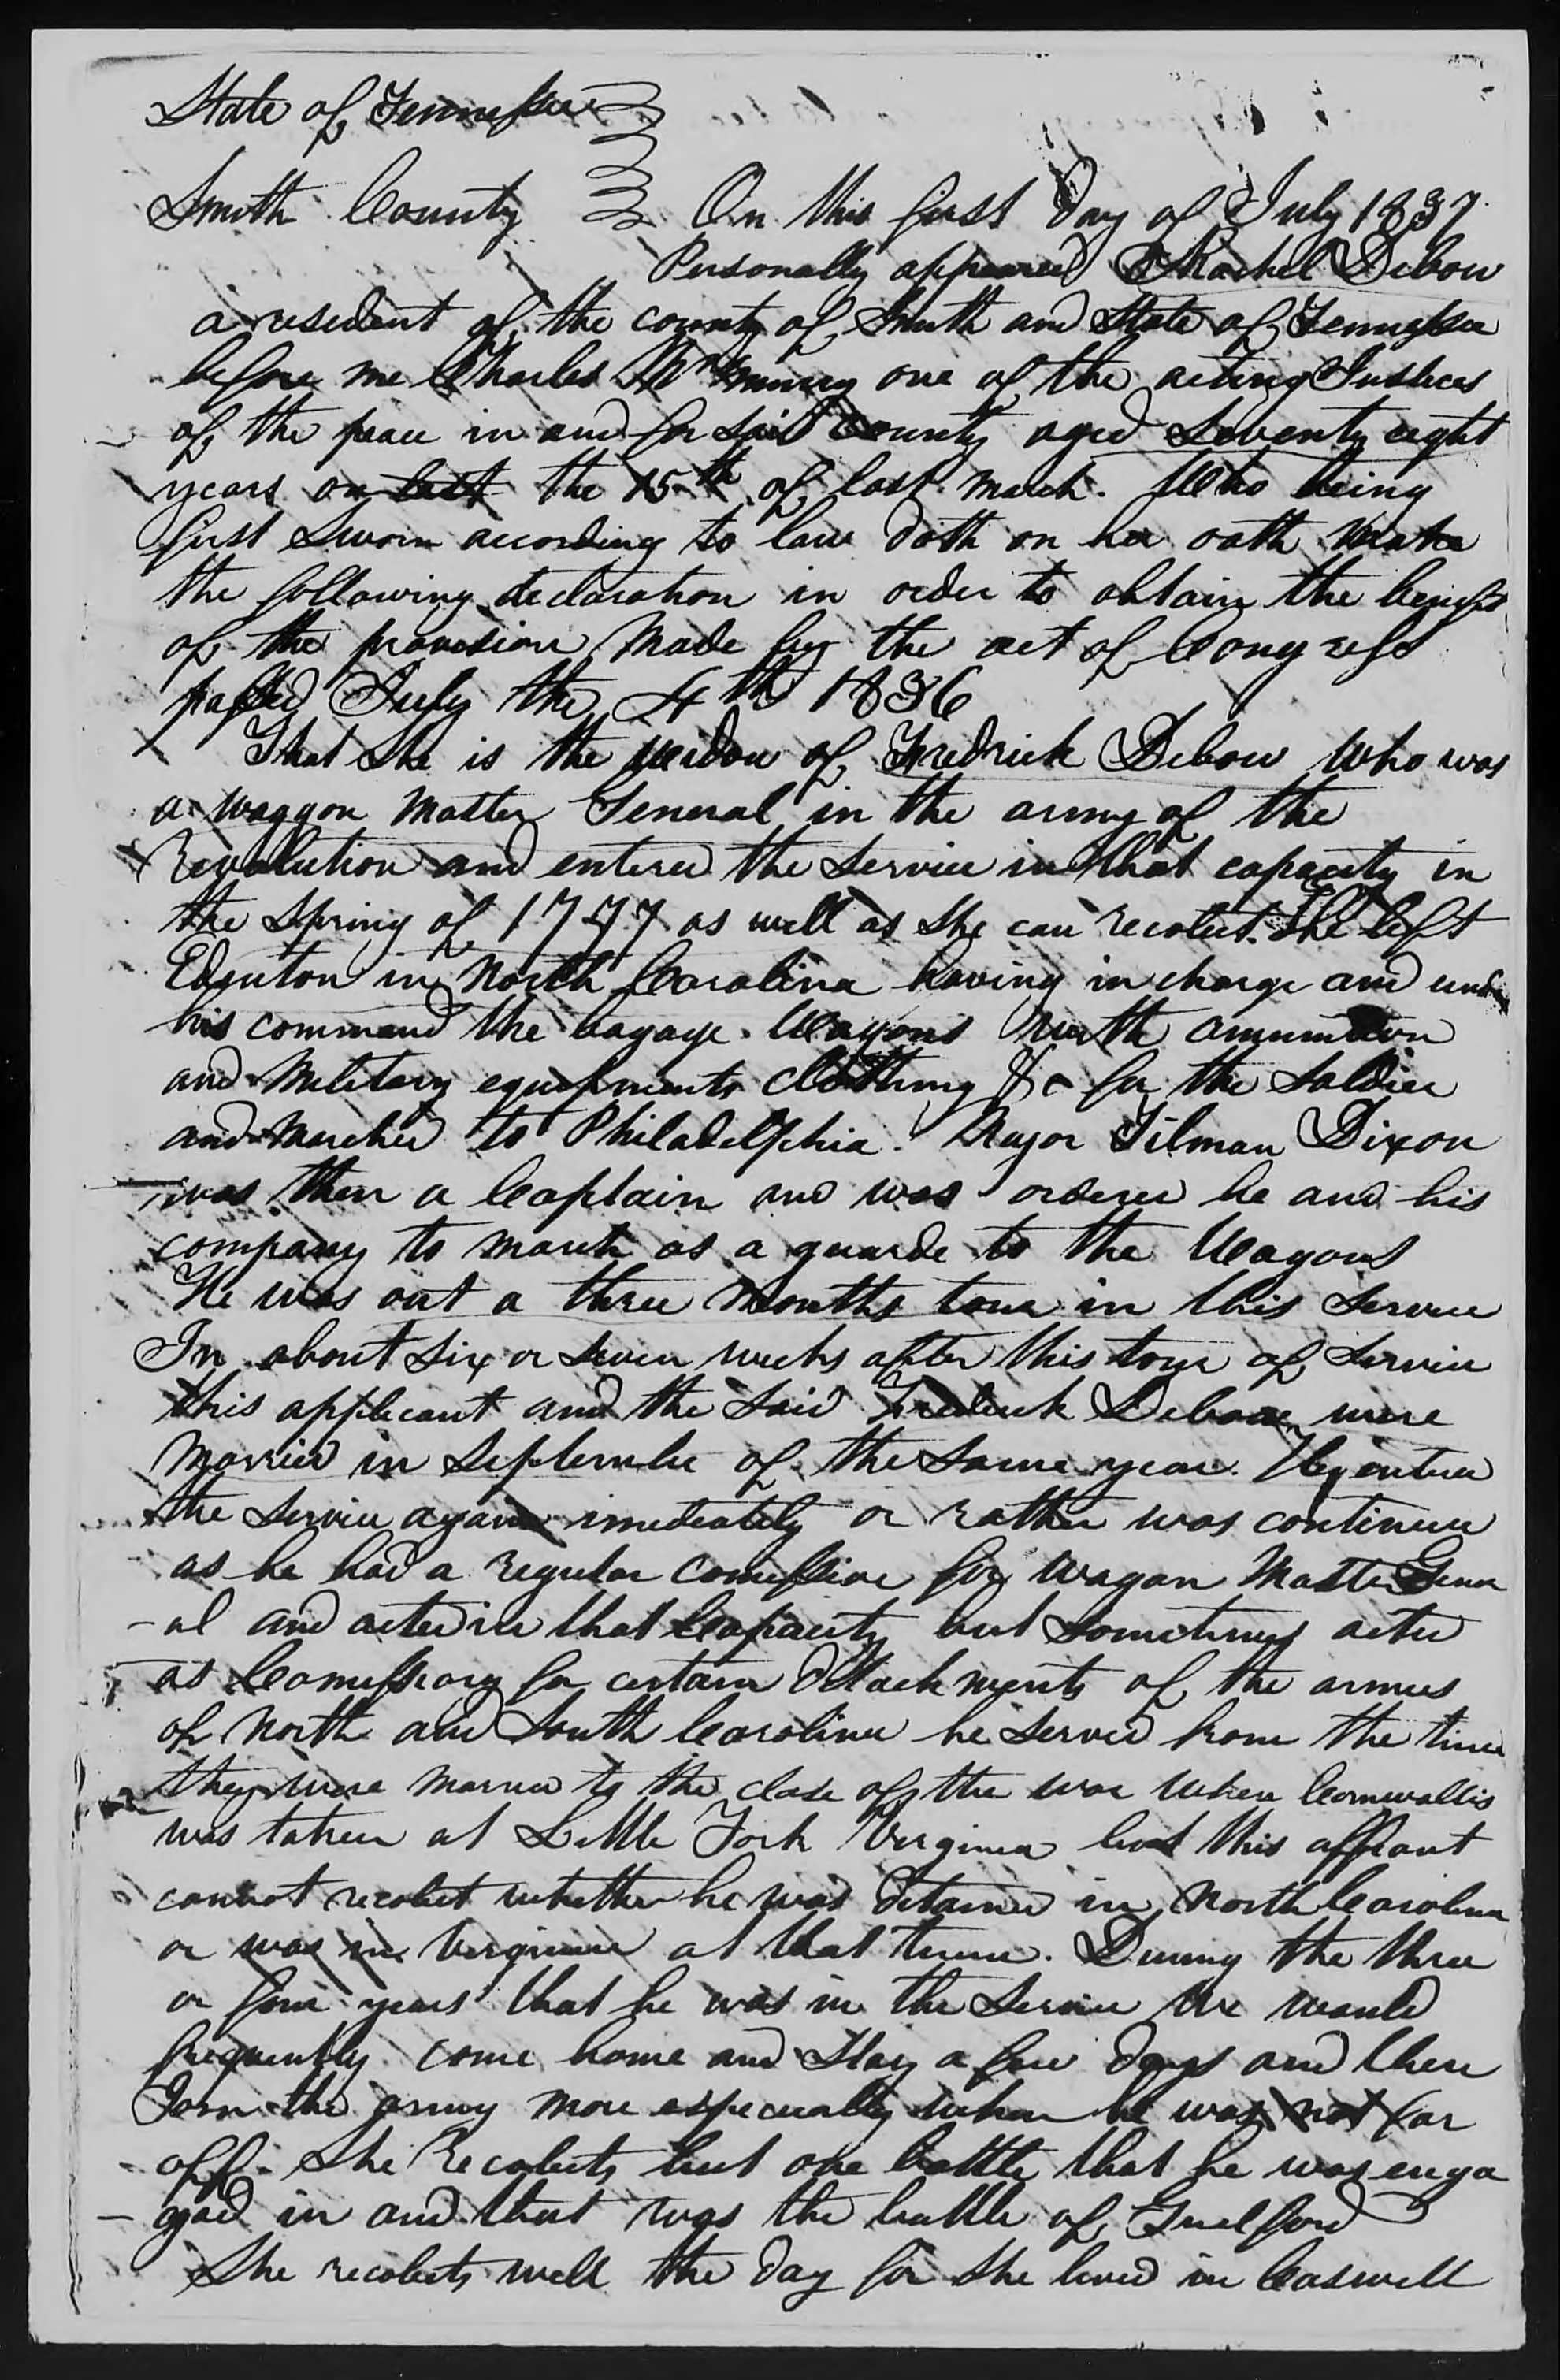 State of Tennessee
Smith County On this first Day of July 1837
Personally appeared Rachel Debow
a resedent of the county of Smith and State of Tennessee
before me Charles Mc one of the acting Justices
of the peace in and for said County aged Seventy eight
years on last the 15th of last march. Who being
first Sworn according to law doth on her oath make
the following declaration in order to obtain the benefit
of the provision made by the act of Congress
passed July the 4th 1836
That She is the widow of Fredrick Debow who was
a waggon Master General in the army of the
Revolution and entered the Service in that capacity in
the Spring of 1777 as well as She can recolect. He left
Edenton in North Carolina having in charge and under
his command the bagage Wagons with amunition
and Military equipments clothing &c for the Soldier
and marched to Philadelphia. Major Tilman Dixon
was then a Captain and was ordered he and his
company to march as a guarde to the Wagons
He was out a three months tour in this Service
In about Six or Seven weeks after this tour of Service
this applicant and the Said Fredrick Debow were
Married in September of the Same year. He entered
the Service again imediately or rather was continued
as he had a regular Comission for Wagon Master Gener
-al and acted in that Capacity but Sometimes acted
as Comissary for certain detachments of the armies
of North and South Carolina he Served from the time
they were married to the close of the war when Cornwallis
was taken at Little York Virginia but this affiant
cannot recolect whether he was detained in North Carolina
or was in Virginia at that time. During the three
or four years that he was in the Service He would
frequently come home and Stay a few days and then
Join the army more especially when he was not far
off. She Recolects but one battle that he was enga
-ged in and that was the battle of Guilford
She recolects well the day for She lived in Caswell